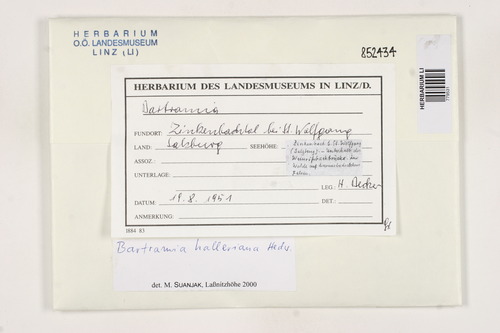 HERBARIUM
O.Ö. LANDESMUSEUM
LINZ (LI)
852434
HERBARIUM LI
HERBARIUM DES LANDESMUSEUMS IN LINZ/D.
Bartramia
FUNDORT: Zinkenbachtal bei St. Wolfgang
LAND: Salzburg SEEHÖHE:
Zinkenbach b. St. Wolfgang
(Salzburg). -
ASSOZ.:
UNTERLAGE:
LEG.: H. Becker
DATUM: 19.8.1951 DET.:
ANMERKUNG:
I884 83
Bartramia halleriana Hedw.
det. M. SUANJAK, Laßnitzhöhe 2000